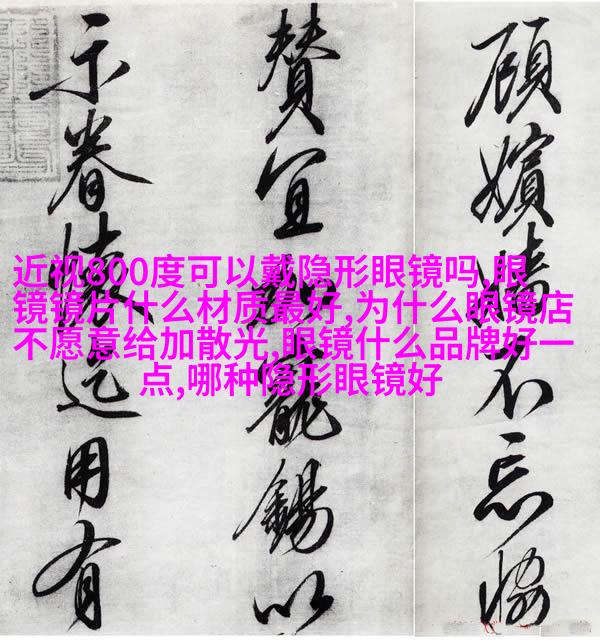 近视800度可以戴隐形眼镜吗,眼
镜镜片什么材质最好,为什么眼镜店
不愿意给加散光,眼镜什么品牌好一
点,哪种隐形眼镜好
顧嬪嬙不忘恊
賛宜寵錫以
示眷懷迄用有